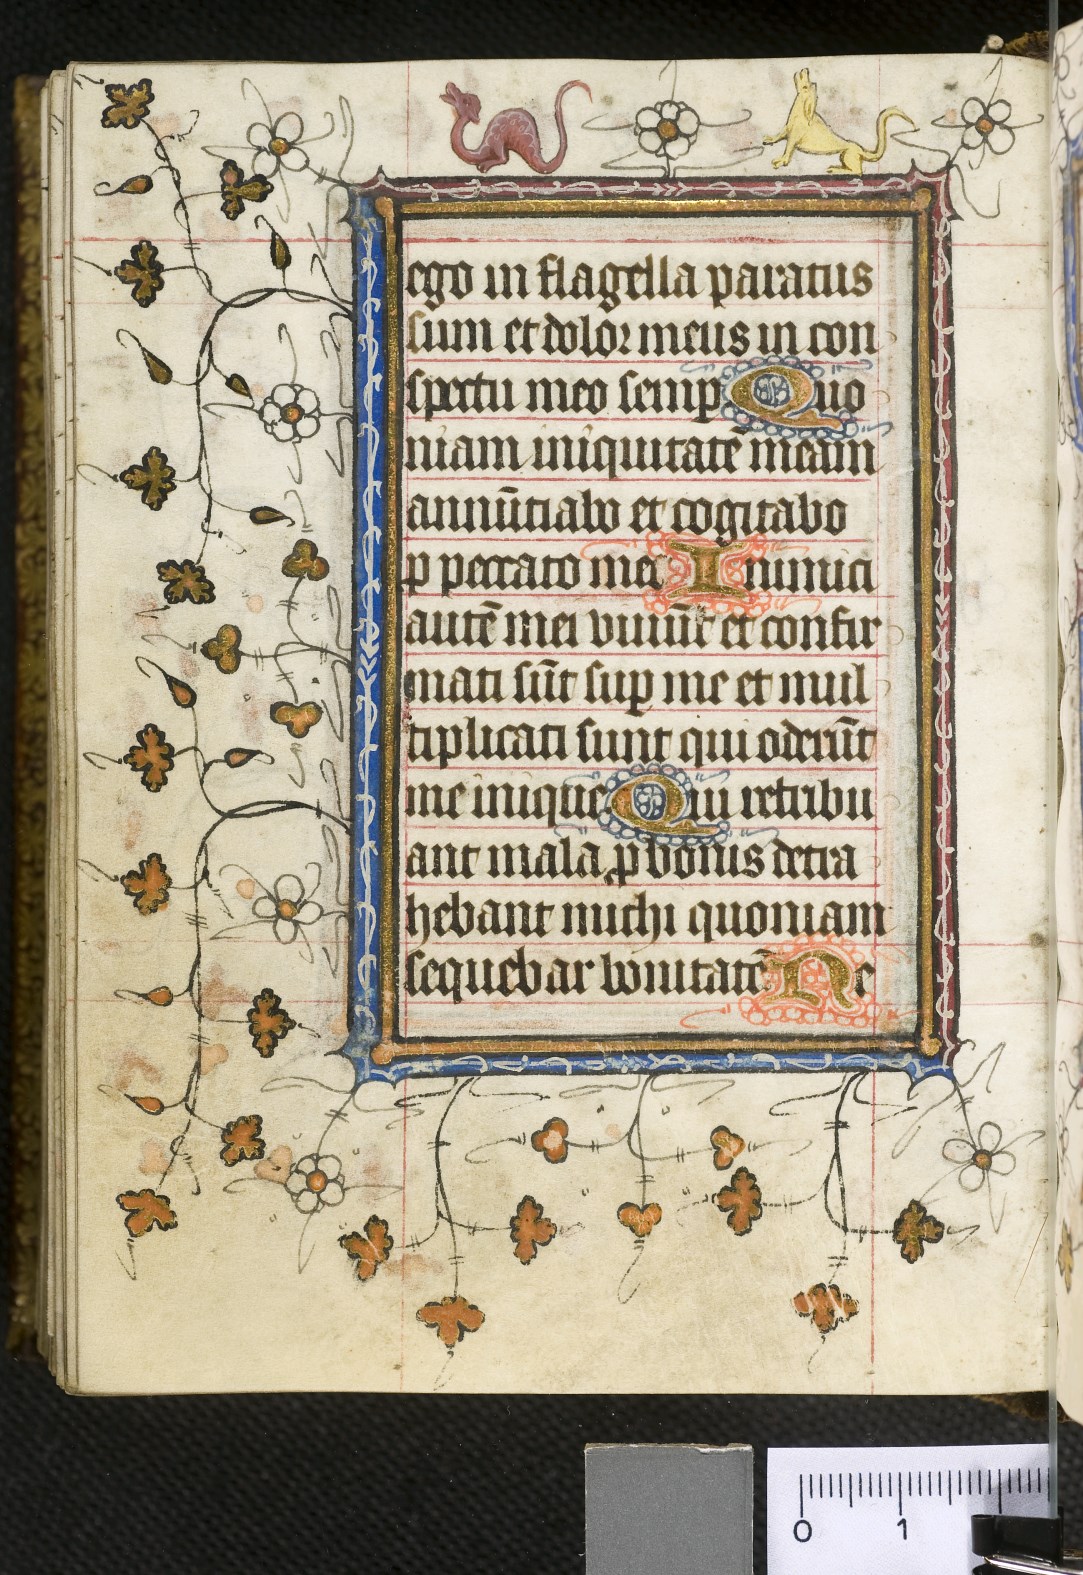 ego in flagella paratus
sum et dolor meus in con
spectu meo semp Quo
niam iniquitatē meam
annūtiabo et cogitabo
p peccato meo Inimici
autē mei viuūt et confir
mati sūt sup me et mul
tiplicati sunt qui oderūt
me inique Qui retribu
ant mala p bonis detra
hebant michi quoniam
sequebar bonitatē Ne
0 1